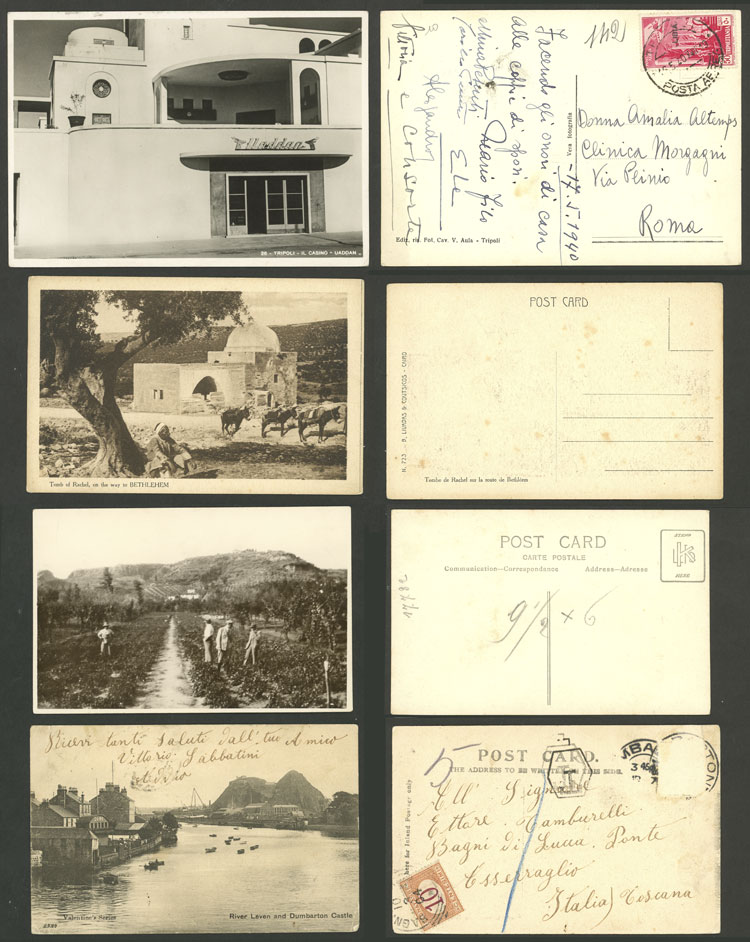 Uaddan
26 - TRIPOLI - IL CASINO - UADDAN
142
Facendo gli onori di casa
alle coppie di sposi.
Mario Filo
Ede
Alejandro
e consorte
Vera fotografia
-17.5.1940
Ediz. ris. Fot. Cav. V. Aula - Tripoli
POSTA AEREA
Donna Amalia Altemps
Clinica Morgagni
Via Plinio
Roma
Tomb of Rachel, on the way to BETHLEHEM
POST CARD
N. 723 - LUMBAS & COUTSICOS - CAIRO
Tombe de Rachel sur la route de Bethléem
POST CARD
CARTE POSTALE
Communication—Correspondence
Address—Adresse
STAMP
HERE
9 1/2 x 6
Ricevi tanti saluti dall' tuo Amico
Vittorio Sabbatini
Addio
Valentine's Series
River Leven and Dumbarton Castle
POST CARD.
THE ADDRESS TO BE WRITTEN ON THIS SIDE.
here for Inland Postage only
T
All' Signore
Ettore Tamburelli
Bagni di Lucca Ponte
Esserraglio
Italia) Toscana
10
BAGNI